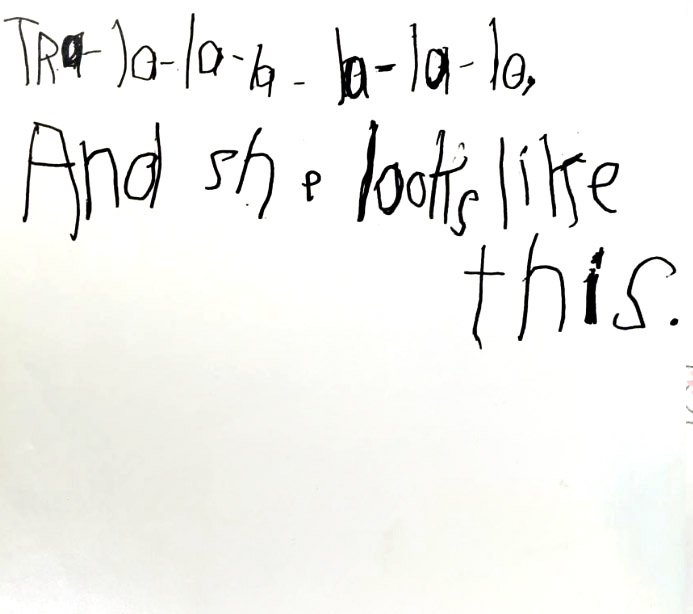 TRa-la-la-la-la-la-la,
And she looks like
this.